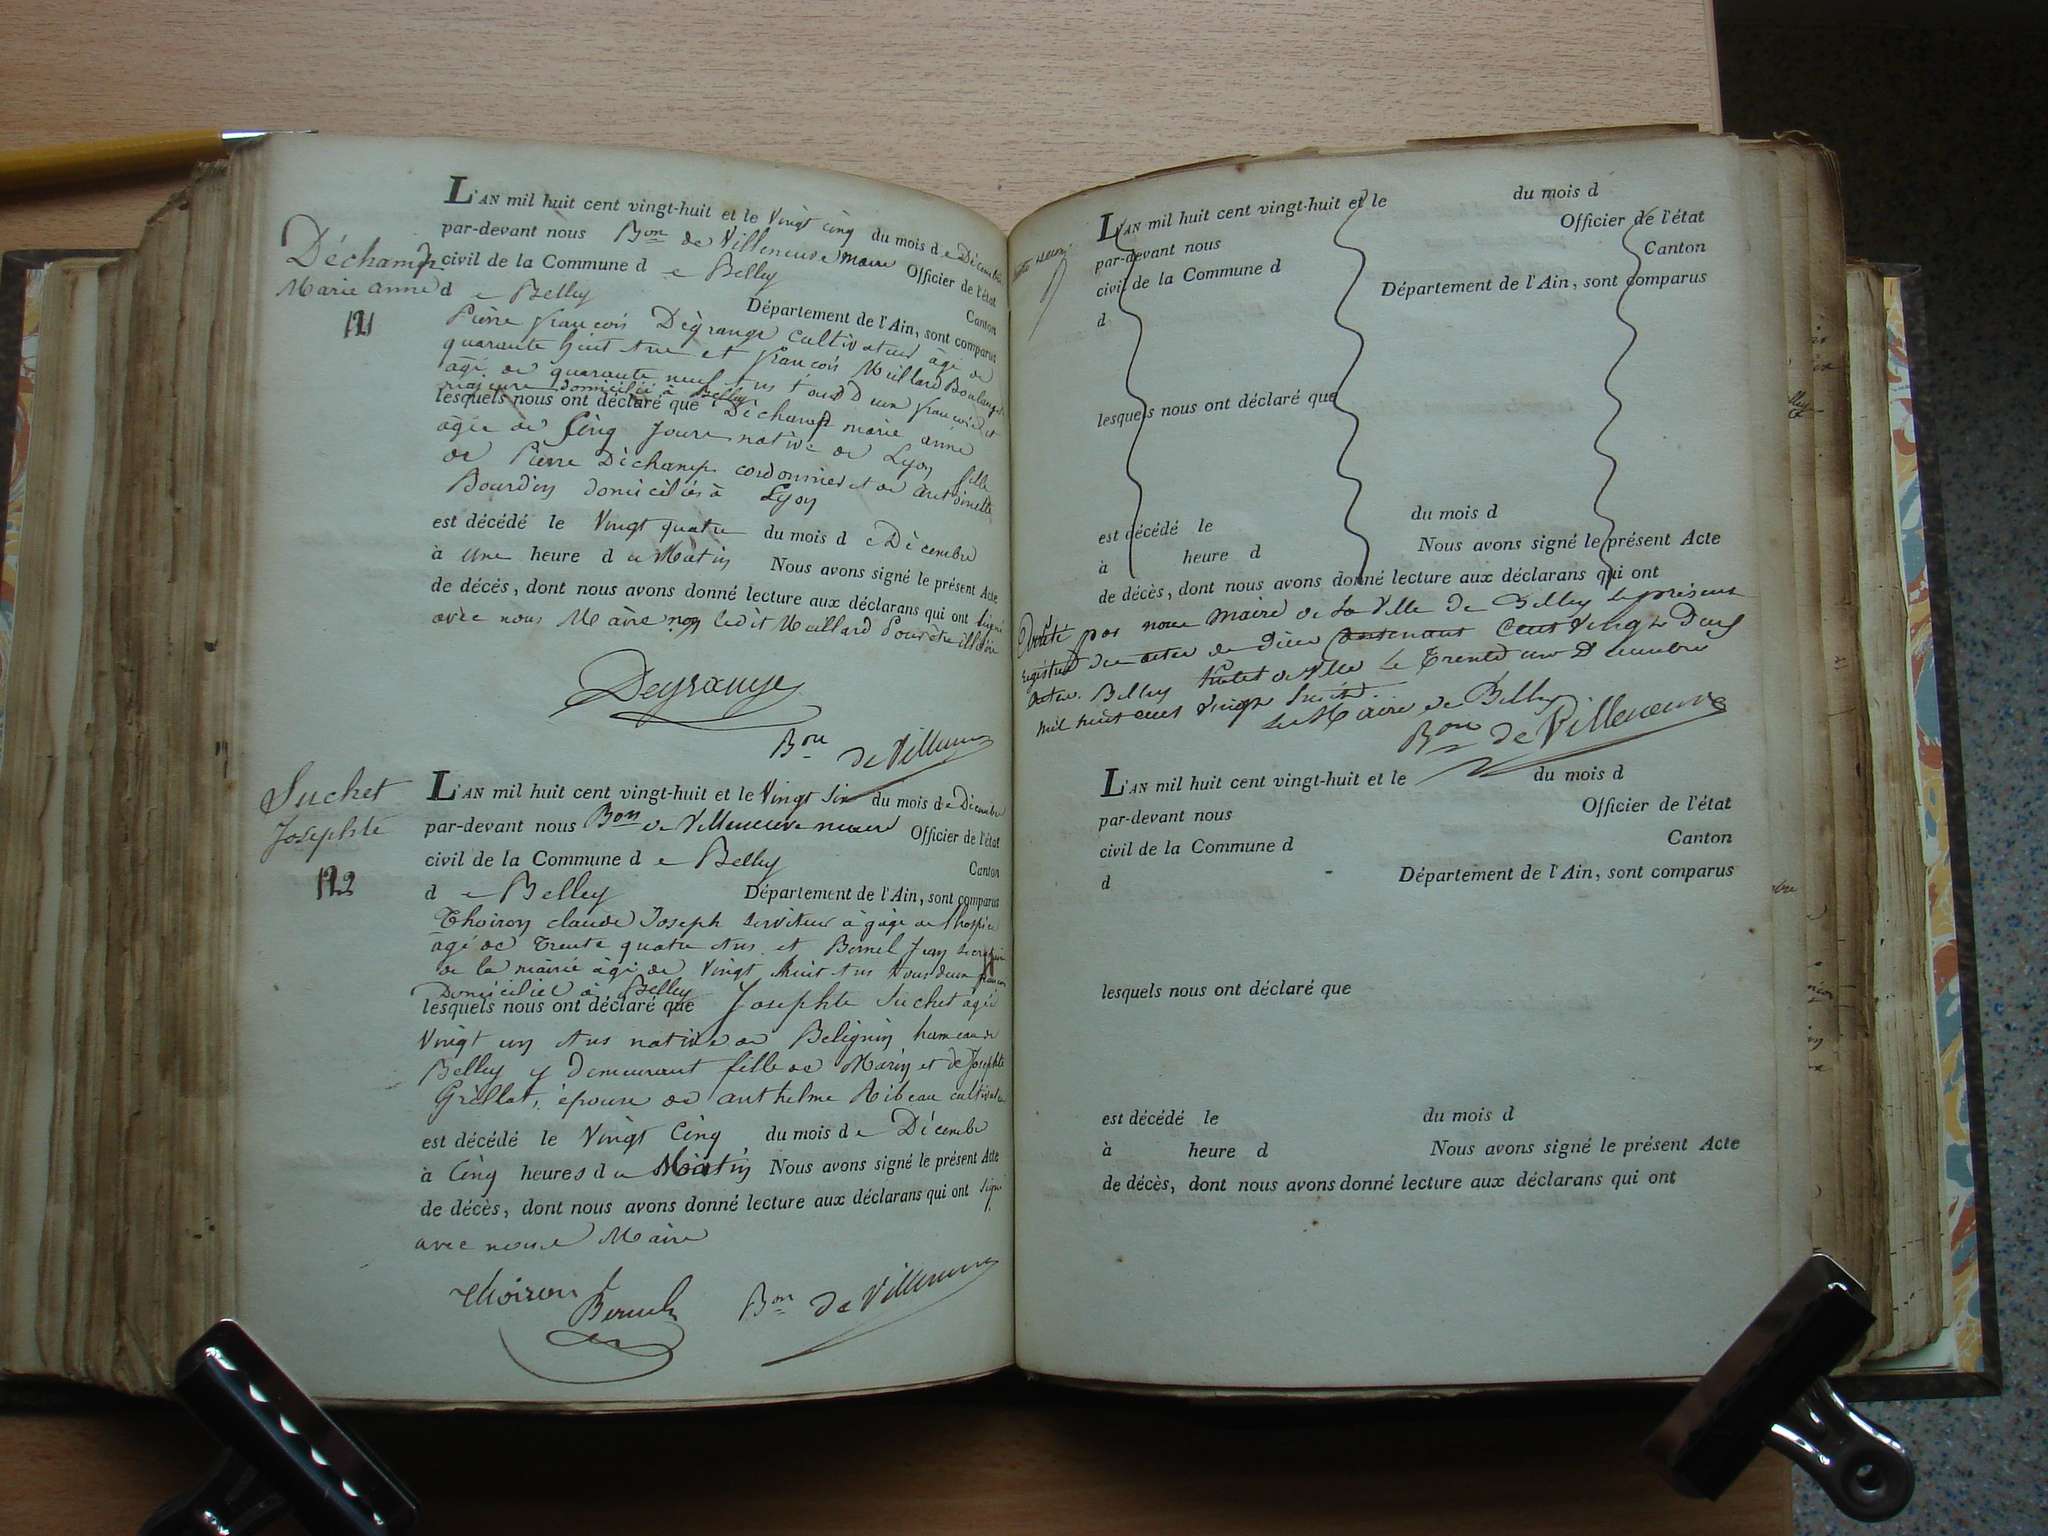 L'AN mil huit cent vingt-huit et le Vingt cinq du mois de Décembre
par-devant nous Bon de Villeneuve maire Officier de l'état
civil de la Commune de Belley Canton
de Belley Département de l'Ain, sont comparus
Déchamp
Marie anne
121
Pierre françois Dégrange cultivateur âgé de
quarante huit Ans et françois Meillard Boulanger
âgé de quarante neuf Ans tous Deux françois et
majeurs domicilié à Belley
lesquels nous ont déclaré que Déchamp marie anne
âgée de Cinq Jours native de Lyon fille
de Pierre Déchamp cordonnier et de Antoinette
Bourdin domiciliés à Lyon
est décédé le Vingt quatre du mois de Décembre
à une heure du Matin Nous avons signé le présent Acte
de décès, dont nous avons donné lecture aux déclarans qui ont signé
avec nous Maire non ledit Meillard Pour être illétéré
Degrange
Bon de Villeneuve
Suchet
Josephte
122
L'AN mil huit cent vingt-huit et le Vingt Six du mois de Décembre
par-devant nous Bon de Villeneuve maire Officier de l'état
civil de la Commune de Belley Canton
de Belley Département de l'Ain, sont comparus
Thoiron claude Joseph serviteur à gage de l'hospice
âgé de Trente quatre Ans et Bernel Jean secrétaire
de la mairie âgé de Vingt huit Ans tous deux françois
Domiciliés à Belley
lesquels nous ont déclaré que Josephte Suchet agée
Vingt un Ans native de Belignin hameau de
Belley y demeurant fille de Marin et de Josephte
Gréllet, épouse de anthelme Ribeau cultivateur
est décédé le Vingt Cinq du mois de Décembre
à Cinq heures du Matin Nous avons signé le présent Acte
de décès, dont nous avons donné lecture aux déclarans qui ont signé
avec nous Maire
Thoiron
Bon de Villeneuve
L'AN mil huit cent vingt-huit et le du mois d
par-devant nous Officier de l'état
civil de la Commune d Canton
d Département de l'Ain, sont comparus
lesquels nous ont déclaré que
est décédé le du mois d
à heure d Nous avons signé le présent Acte
de décès, dont nous avons donné lecture aux déclarans qui ont
Arrêté par nous Maire de la Ville de Belley le présent
registre des actes de décès contenant Cent Vingt Deux
actes. Belley hotel de Ville le Trente un Décembre
mil huit cent vingt huit.
Le Maire de Belley
Bon de Villeneuve
L'AN mil huit cent vingt-huit et le du mois d
par-devant nous Officier de l'état
civil de la Commune d Canton
d Département de l'Ain, sont comparus
lesquels nous ont déclaré que
est décédé le du mois d
à heure d Nous avons signé le présent Acte
de décès, dont nous avons donné lecture aux déclarans qui ont